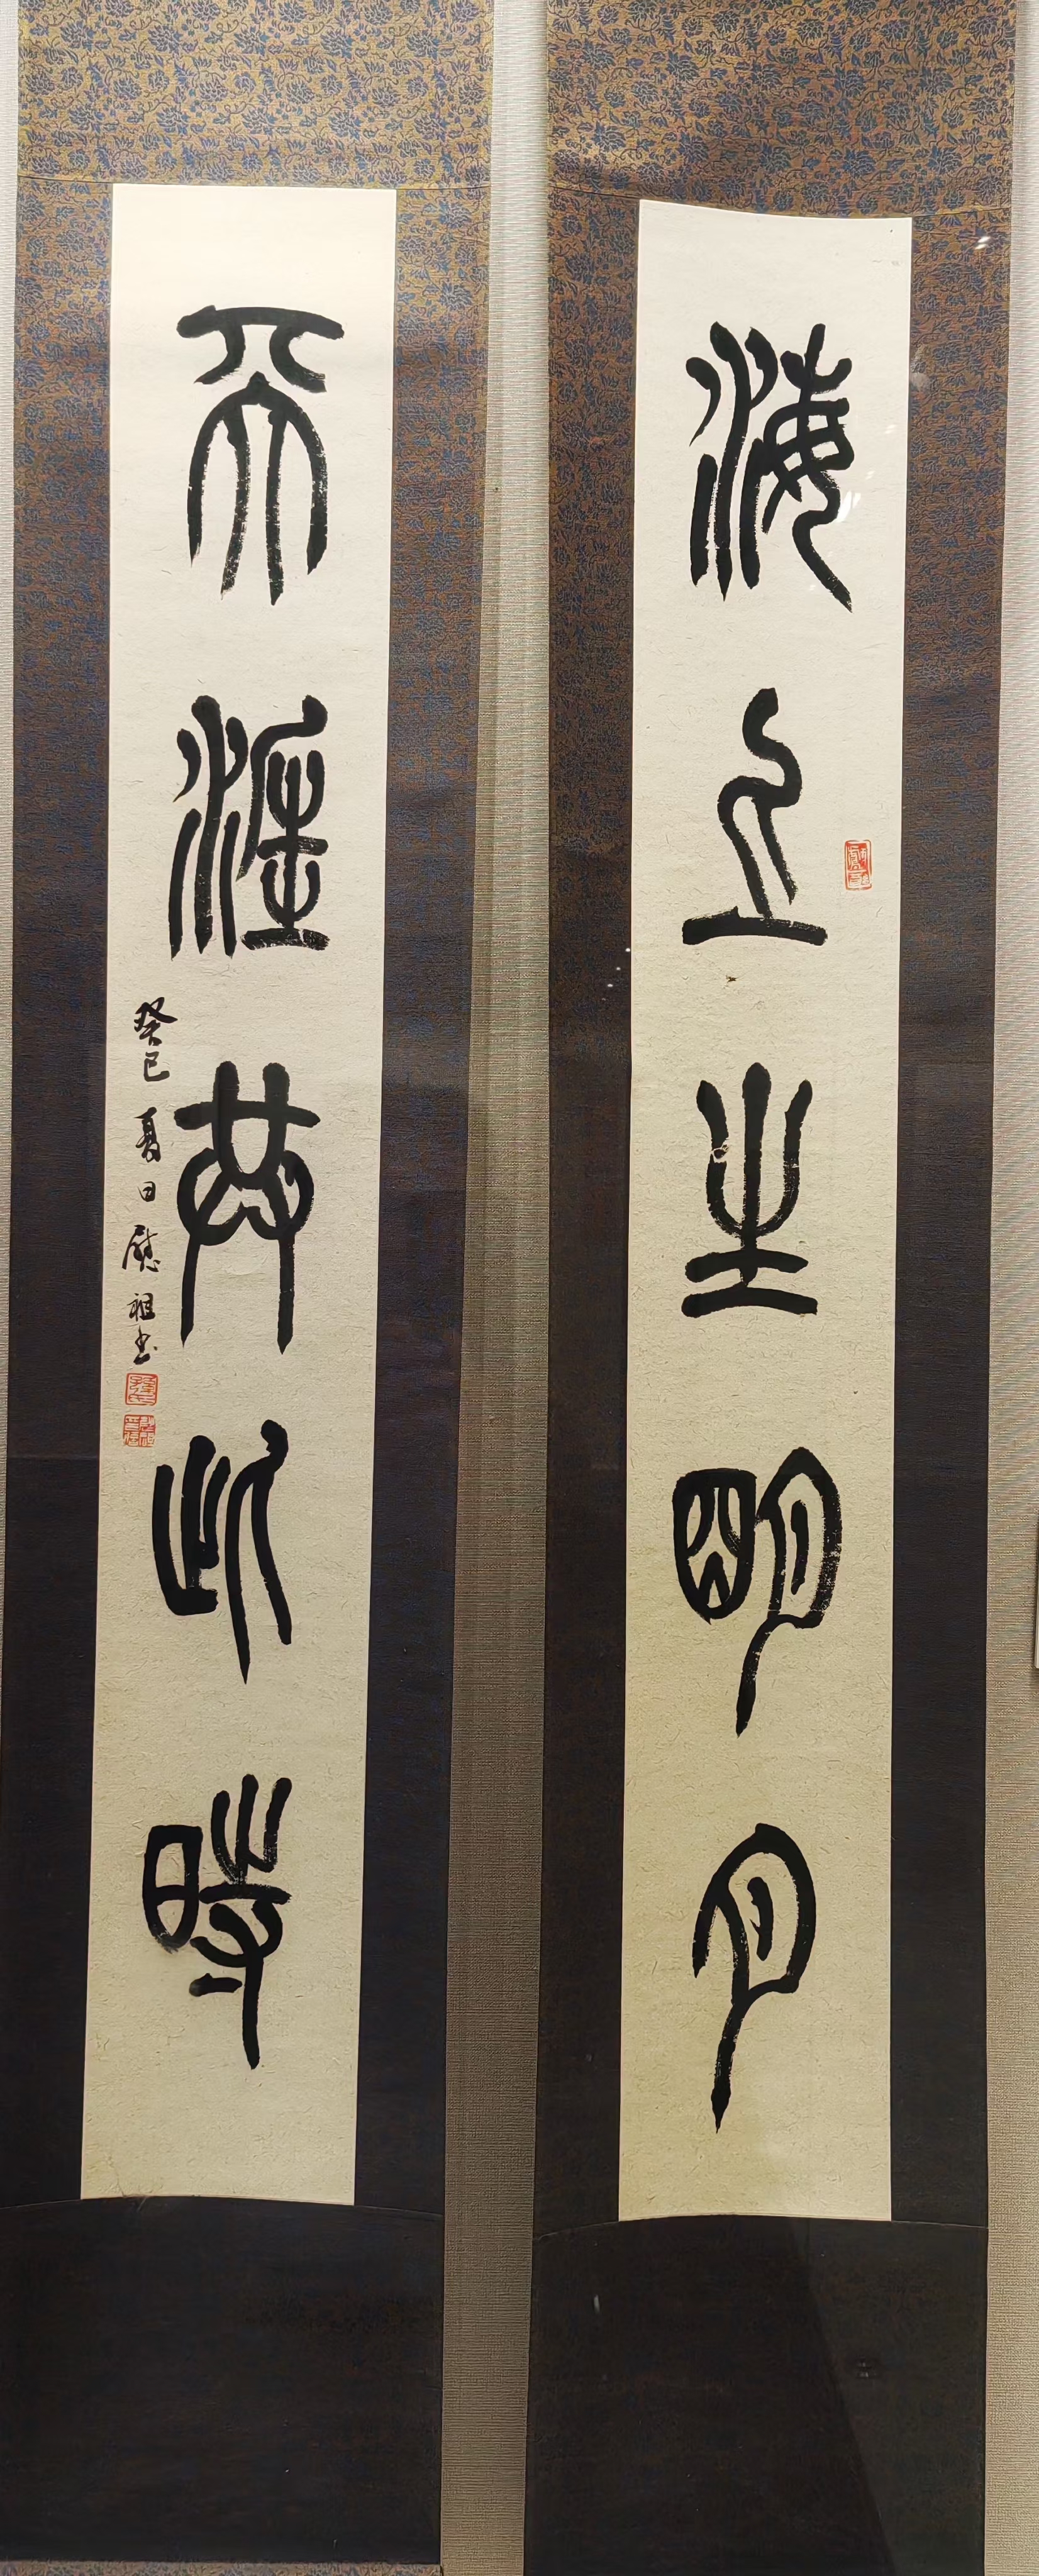 海上生明月
天涯共此時
癸巳夏日慰祖書